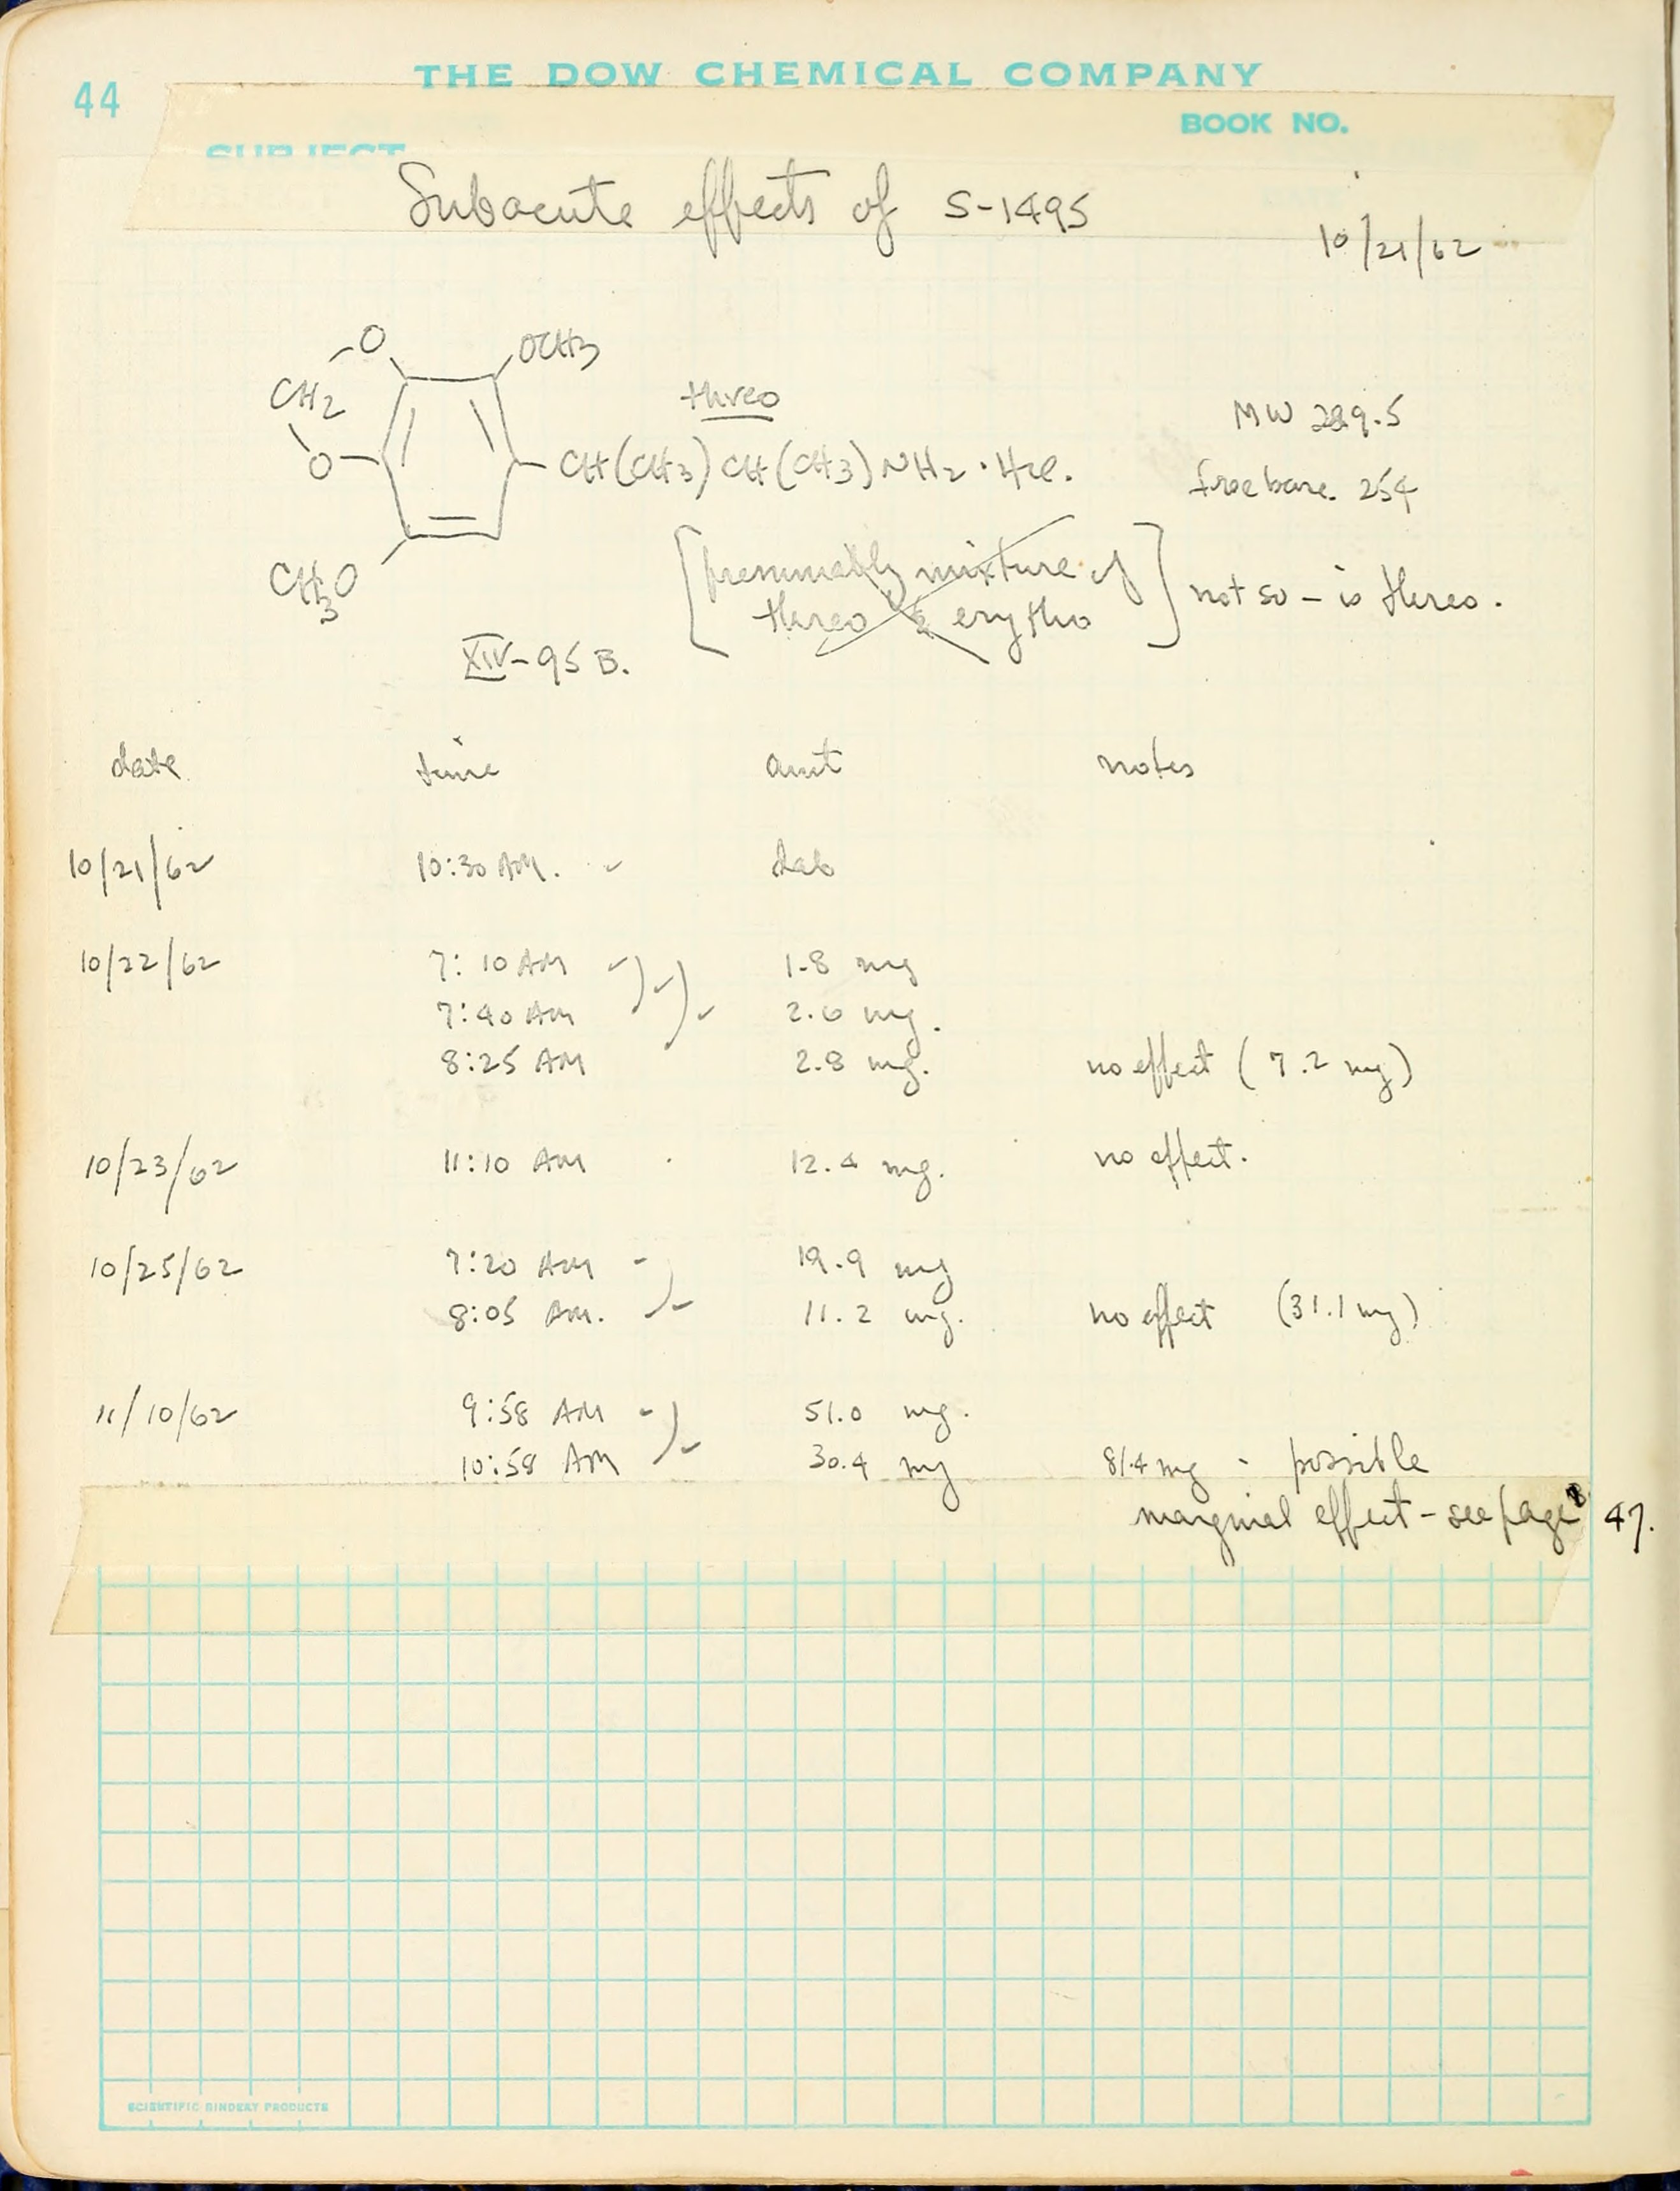 44
THE DOW CHEMICAL COMPANY
BOOK NO.
SUBJECT
Subacute effects of S-1495
10/21/62
O
OCH3
CH2
threo
MW 289.5
O
CH(CH3)CH(CH3)NH2·HCl.
free base. 254
CH3O
[presumably mixture of
threo & erythro]
not so – is threo.
XIV-95B.
date time amt notes
10/21/62 10:30 AM. dab
10/22/62 7:10 AM 1.8 mg
7:40 AM 2.6 mg.
8:25 AM 2.8 mg. no effect (7.2 mg)
10/23/62 11:10 AM 12.4 mg. no effect.
10/25/62 7:20 AM 19.9 mg
8:05 AM. 11.2 mg. no effect (31.1 mg)
11/10/62 9:58 AM 51.0 mg.
10:58 AM 30.4 mg 81.4 mg - possible
marginal effect – see page 47.
SCIENTIFIC BINDERY PRODUCTS